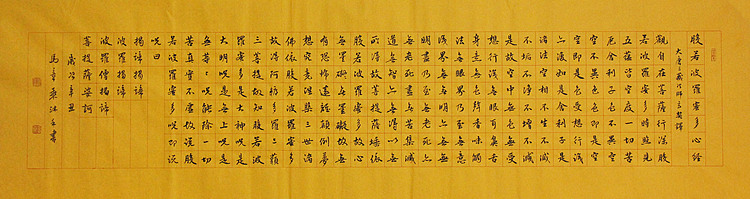 般若波羅蜜多心經
大唐三藏法師玄奘譯
觀自在菩薩行深般
若波羅蜜多時照見
五蘊皆空度一切苦
厄舍利子色不異空
空不異色色即是空
空即是色受想行識
亦復如是舍利子是
諸法空相不生不滅
不垢不淨不增不減
是故空中無色無受
想行識無眼耳鼻舌
身意無色聲香味觸
法無眼界乃至無意
識界無無明亦無無
明盡乃至無老死亦
無老死盡無苦集滅
道無智亦無得以無
所得故菩提薩埵依
般若波羅蜜多故心
無罣礙無罣礙故無
有恐怖遠離顛倒夢
想究竟涅槃三世諸
佛依般若波羅蜜多
故得阿耨多羅三藐
三菩提故知般若波
羅蜜多是大神咒是
大明咒是無上咒是
無等等咒能除一切
苦真實不虛故說般
若波羅蜜多咒即說
咒曰
揭諦揭諦
波羅揭諦
波羅僧揭諦
菩提薩婆訶
歲次辛丑